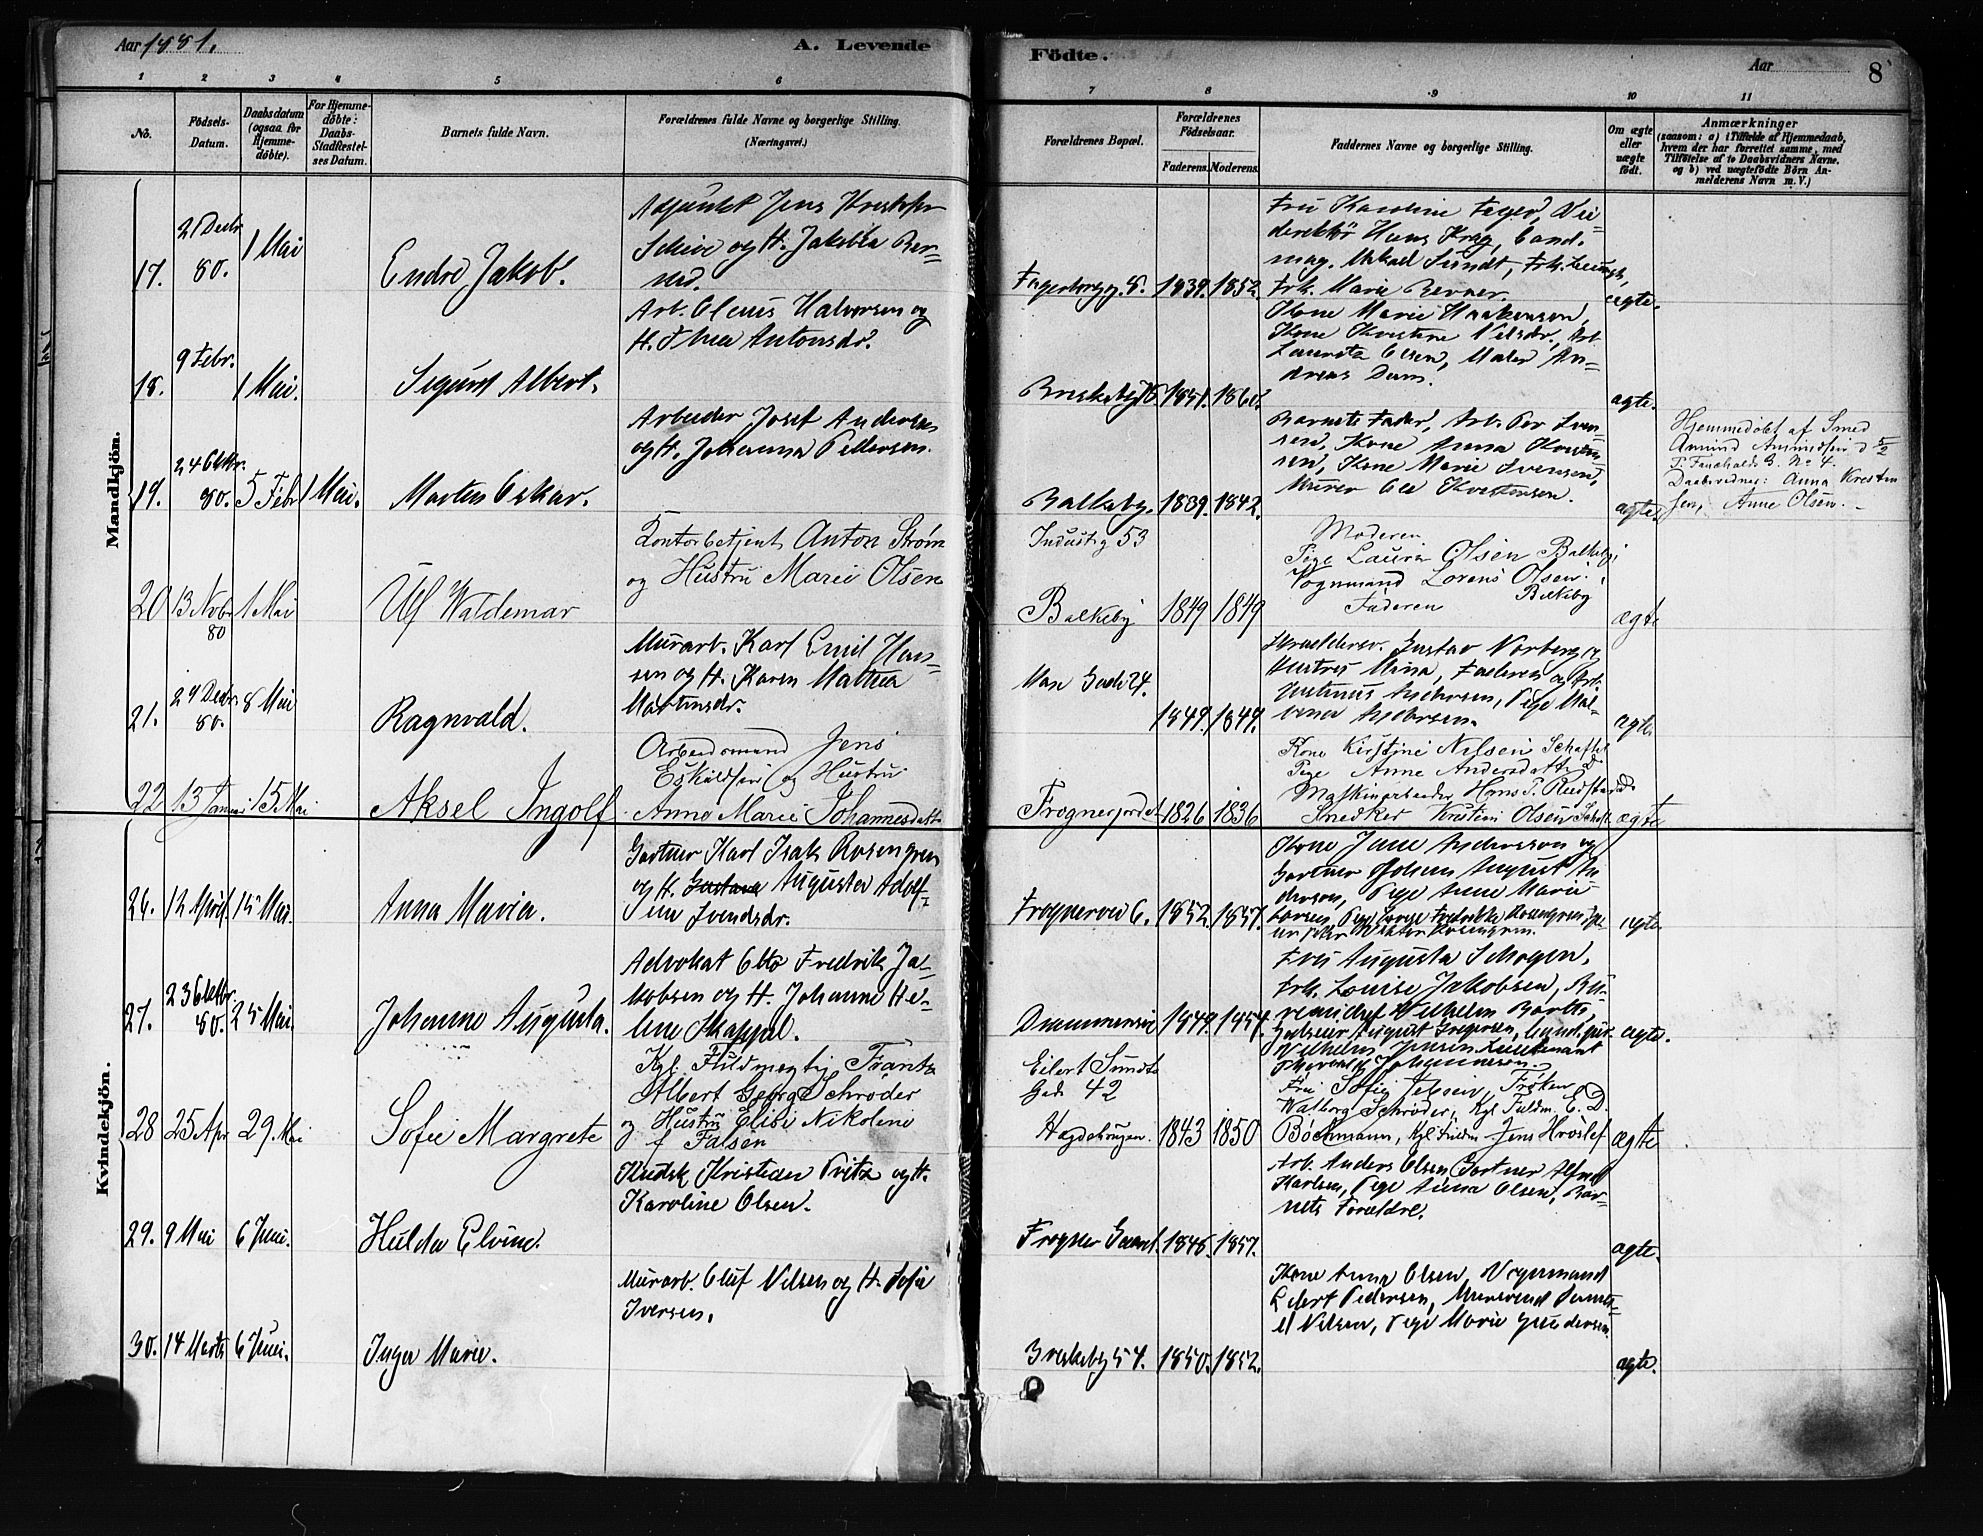 Aar 1881.
A. Levende
Födte.
Aar
8
1 2 3 4 5 6 7 8 9 10 11
No.
Födsels-
Datum.
Daabsdatum
(ogsaa for
Hjemme-
döbte).
For Hjemme-
döbte:
Daabs-
Stadfæstel-
ses Datum.
Barnets fulde Navn.
Forældrenes fulde Navne og borgerlige Stilling.
(Næringsvei.)
Forældrenes Bopæl.
Forældrenes
Födselsaar.
Faderens. Moderens.
Faddernes Navne og borgerlige Stilling.
Om ægte
eller
uægte
födt.
Anmærkninger
(saasom: a) i Tilfælde af Hjemmedaab,
hvem der har forrettet samme, med
Tilföielse af to Daabsvidners Navne,
og b) ved uægtefödte Börn An-
melderens Navn m. V.)
Mandkjön.
17.
21 Decbr
80.
1 Mai
Endre Jakob.
Adjunkt Jens Kristofer
Schive og H. Jakobea Ber-
ner.
Fagerborgg. 8.
1839. 1852.
Fru Karoline Feyer, Vei
direktör Hans Krag, Cand.
mag. Mikael Sundt,
Frk. Marie Berner.
ægte.
18.
9 Febr.
1 Mai.
Sigurd Albert.
Arb. Olenus Halvorsen og
H. Thea Antonsdr.
Kone Marie Haakensen,
Kone Kristine Nilsdr, Arb.
Laurits Olsen, Maler An-
dreas Dam.
ægte.
19.
24 Oktbr.
80.
5 Febr
1 Mai.
Morten Oskar.
Arbeider Josef Andersen
og H. Johanna Pettersen.
Balkeby.
1839. 1842.
Barnets Fader, Arb. Per Iven-
sen, Kone Anna
Kone Marie Ivensen,
Murer Ole Kristensen.
ægte.
Hjemmedöbt af Smed
Amund Amundsen d 5/2
No 4.
Daabsvidner: Anna Kristen
sen, Anne Olsen.
20
13 Nobr
80
1 Mai
Ulf Waldemar
Kontorbetjent Anton Strøm
og Hustru Marie Olsen
Industrig 53
Balkeby
1849 1849
Moderen
Pige Laura Olsen Balkeby
Vognmand Lorens Olsen
Balkeby
Faderen
ægte
21.
29 Decbr.
80.
8 Mai
Ragnvald.
Murarb. Karl Emil Han-
sen og H. Karen Mathea
Martinsdr.
Gade 24.
1849. 1849.
Gustav Norberg og
Hustru Mina, Faderen og Arb.
Andersen, Pige Mal-
vina Andersen.
ægte
22
13 Januar
15 Mai
Aksel Ingolf
Arbeidsmand Jens
Eskildsen og Hustru
Anne Marie Johannesdatt
Frognerjordet
1826 1836
Kone Kirstine Nilsen
Pige Anne Andersdatter
Maskinarbeider Hans P.
Snedker Kristian Olsen
ægte
Kvindekjön.
26.
12 April
15 Mai.
Anna Maria.
Gartner Karl Isak Rosengren
og H. Gustava Augusta Adolf-
ina Svendsdr.
Frognervei 6.
1852. 1857.
Kone Jane Andersson og
Gartner Johan August An
derson, Pige Anne Marie
Larsen, Pige Fredrikke Rosengren,
Viktor Rosengren.
ægte.
27.
23 Oktbr.
80.
25 Mai.
Johanne Augusta.
Advokat Otto Fredrik Ja-
kobsen og H. Johanne He-
lene Skappel.
Drammensvei
1849. 1854.
Fru Augusta Schogen,
Frk. Louise Jakobsen, Bu-
reauchef Wilhelm
August Gregersen,
Vilhelm Jensen Lieutenant
Johannessen
ægte.
28
25 Apr
29. Mai
Sofie Margrete
Kgl Fuldmægtig Frantz
Albert Georg Schrøder
og Hustru Elise Nikoline
f Falsen
Eilert Sundts
Gade 42
Hægdehaugen.
1843 1850
Fru Sofie Jensen, Frøken
Walborg Schrøder, Kgl Fuldm. E. D.
Bøchmann, Kgl Fuldm Jens Hvoslef
ægte
29.
9 Mai
6 Juni.
Hulda Elvine.
Kudsk Kristian Pritz og H.
Karoline Olsen.
Frogner Gaard.
1846. 1857.
Arb. Anders Olsen, Gartner Alfred
Karlsen, Pige Anna Olsen, Bar-
nets Forældre.
ægte.
30.
14 Marts
6 Juni.
Inga Marie.
Murarb. Oluf Nilsen og H. Sofie
Iversen.
Briskeby 54.
1850. 1852.
Kone Anna Olsen, Vognmand
Edvert Pedersen, Murersvend
Nilsen, Pige Marie Gundersen
ægte.